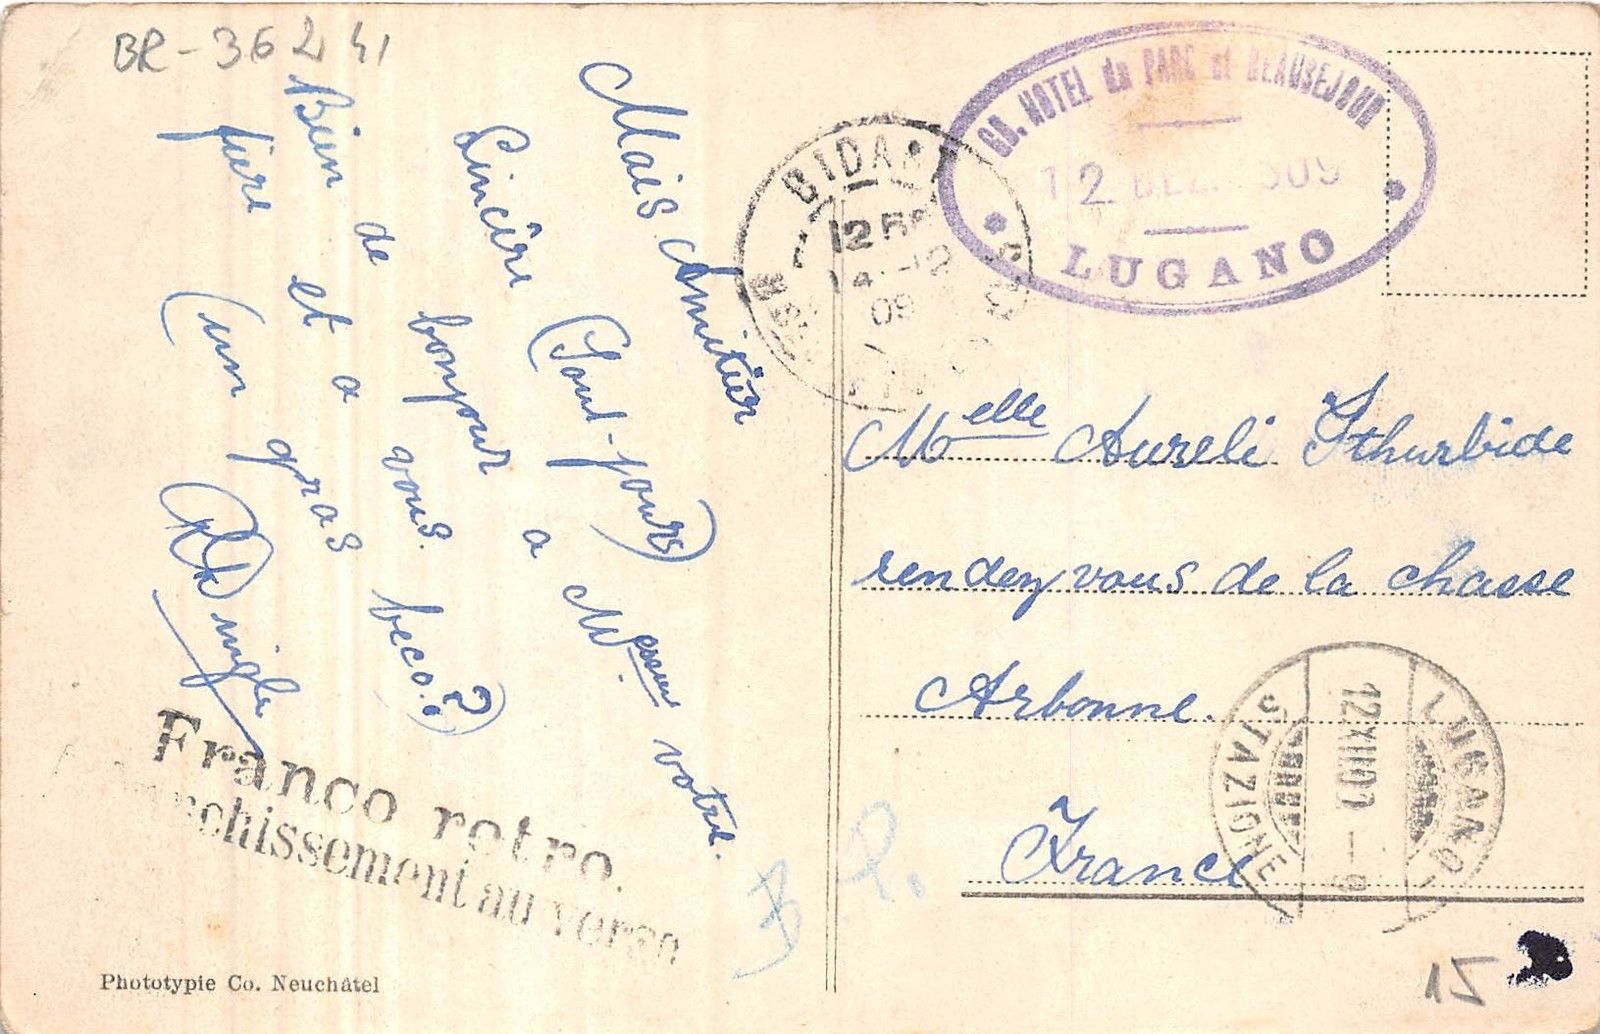 BR-36241
Mais amitier
Sincère (Tout-jours)
bonjour a M essieu votre.
Bien de vous. beco.?)
fiere et a gras
(un
Franco retro.
chissement au verso
Phototypie Co. Neuchâtel
GD. HOTEL du PARC et BEAUSEJOUR
12 DEZ. 909
LUGANO
BIDA
12
14 -12
09
Melle Aureli Ithurbide
rendez vous de la chasse
Arbonne.
France
LUGANO
12 XII 09 - 9
STAZIONE
B. P.
15